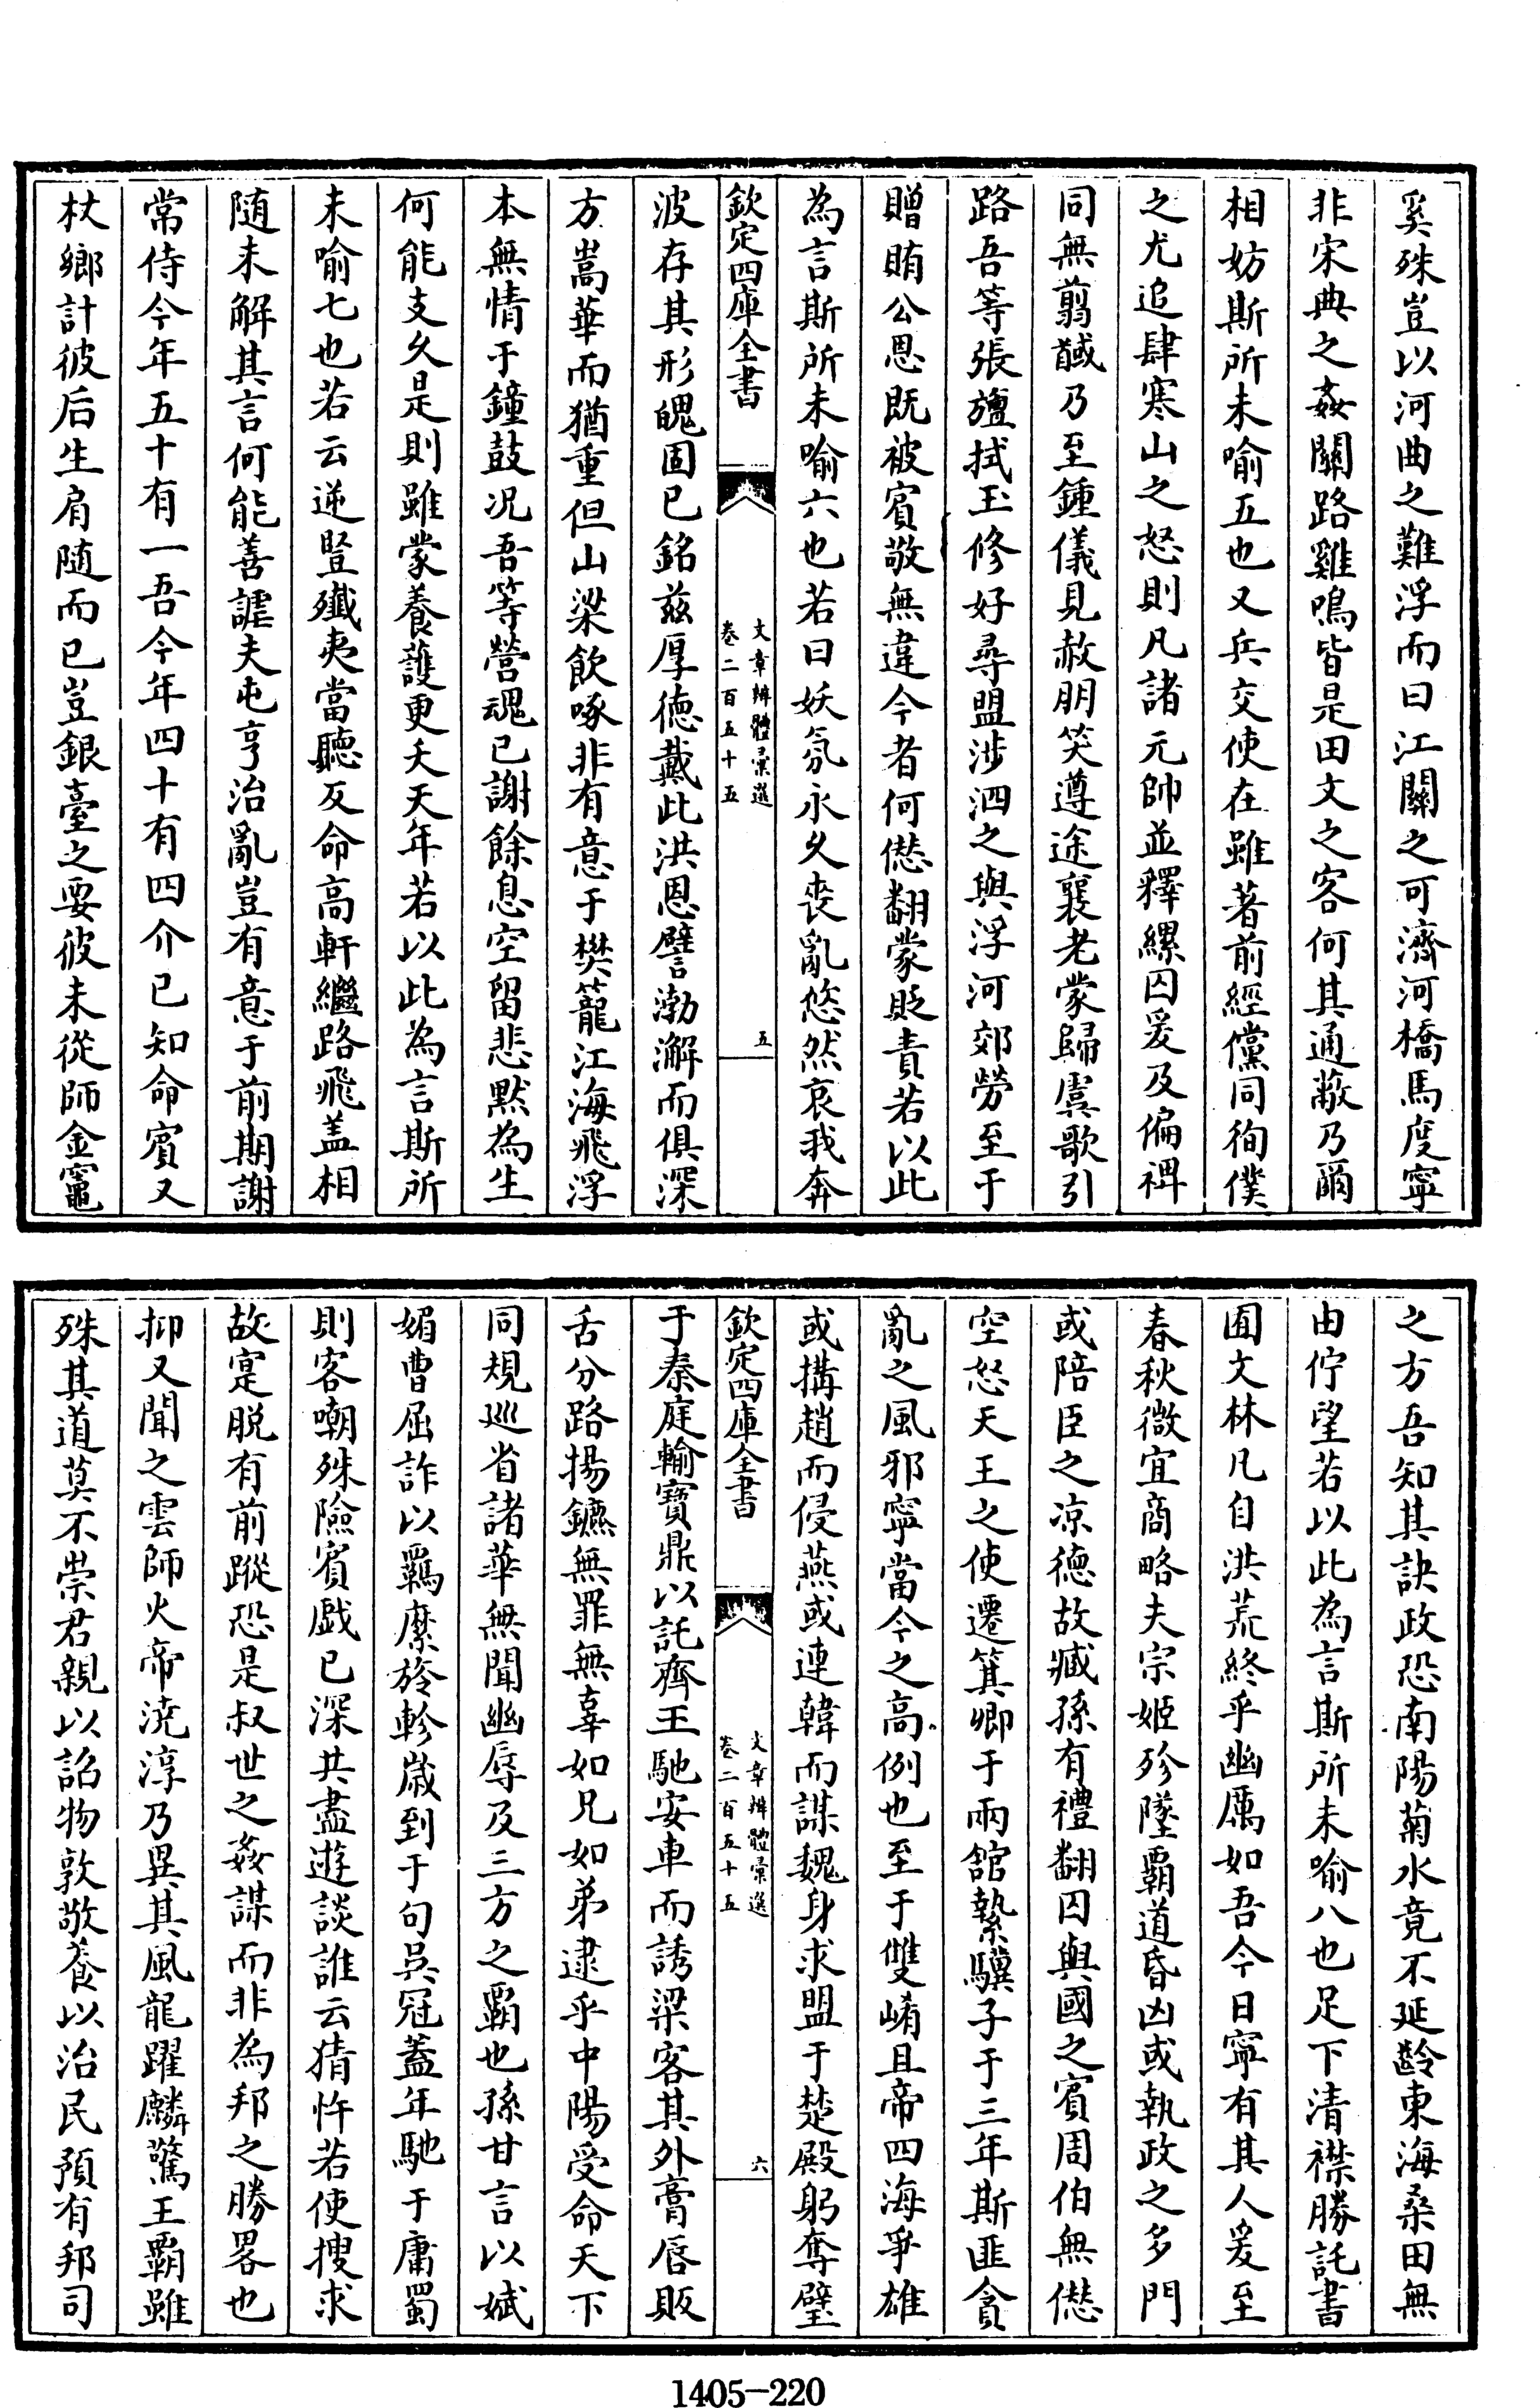 奚殊豈以河曲之難浮而曰江關之可濟河橋馬度寧
非宋典之姦關路雞鳴皆是田文之客何其通蔽乃爾
相妨斯所未喻五也又兵交使在雖著前經儻同徇僕
之尤追肆寒山之怒則凡諸元帥並釋縲囚爰及偏裨
同無翦馘乃至鍾儀見赦朋笑遵途襄老蒙歸虞歌引
路吾等張旜拭玉修好尋盟涉泗之與浮河郊勞至于
贈賄公恩既被賓敬無違今者何愆翻蒙貶責若以此
為言斯所未喻六也若曰妖氛永久喪亂悠然哀我奔
欽定四庫全書
文章辨體彙選
卷二百五十五
五
波存其形魄固已銘兹厚德戴此洪恩譬渤澥而俱深
方嵩華而猶重但山梁飲啄非有意于樊籠江海飛浮
本無情于鐘鼓况吾等營魂已謝餘息空留悲默為生
何能支久是則雖蒙養護更夭天年若以此為言斯所
未喻七也若云逆豎殲夷當聽反命高軒繼路飛盖相
随未解其言何能善謔夫屯亨治亂豈有意于前期謝
常侍今年五十有一吾今年四十有四介已知命賓又
杖鄉計彼后生肩随而已豈銀臺之要彼未從師金竈
之方吾知其訣政恐南陽菊水竟不延齡東海桑田無
由佇望若以此為言斯所未喻八也足下清襟勝託書
囿文林凡自洪荒終乎幽厲如吾今日寧有其人爰至
春秋微宜商略夫宗姬殄墜覇道昏凶或執政之多門
或陪臣之凉德故臧孫有禮翻囚與國之賓周伯無愆
空怒天王之使遷箕卿于兩舘縶驥子于三年斯匪貪
亂之風邪寧當今之高例也至于雙崤且帝四海爭雄
或搆趙而侵燕或連韓而謀魏身求盟于楚殿躬奪璧
欽定四庫全書
文章辨體彙選
卷二百五十五
六
于秦庭輸寶鼎以託齊王馳安車而誘梁客其外膏唇販
舌分路揚鑣無罪無辜如兄如弟逮乎中陽受命天下
同規巡省諸華無聞幽辱及三方之覇也孫甘言以娬
媚曹屈詐以羈縻旍軫歲到于句吳冠蓋年馳于庸蜀
則客嘲殊險賓戲已深共盡遊談誰云猜忤若使搜求
故寔脱有前蹤恐是叔世之姦謀而非為邦之勝畧也
抑又聞之雲師火帝澆淳乃異其風龍躍麟驚王覇雖
殊其道莫不崇君親以詔物敦敬養以治民預有邦司
1405-220